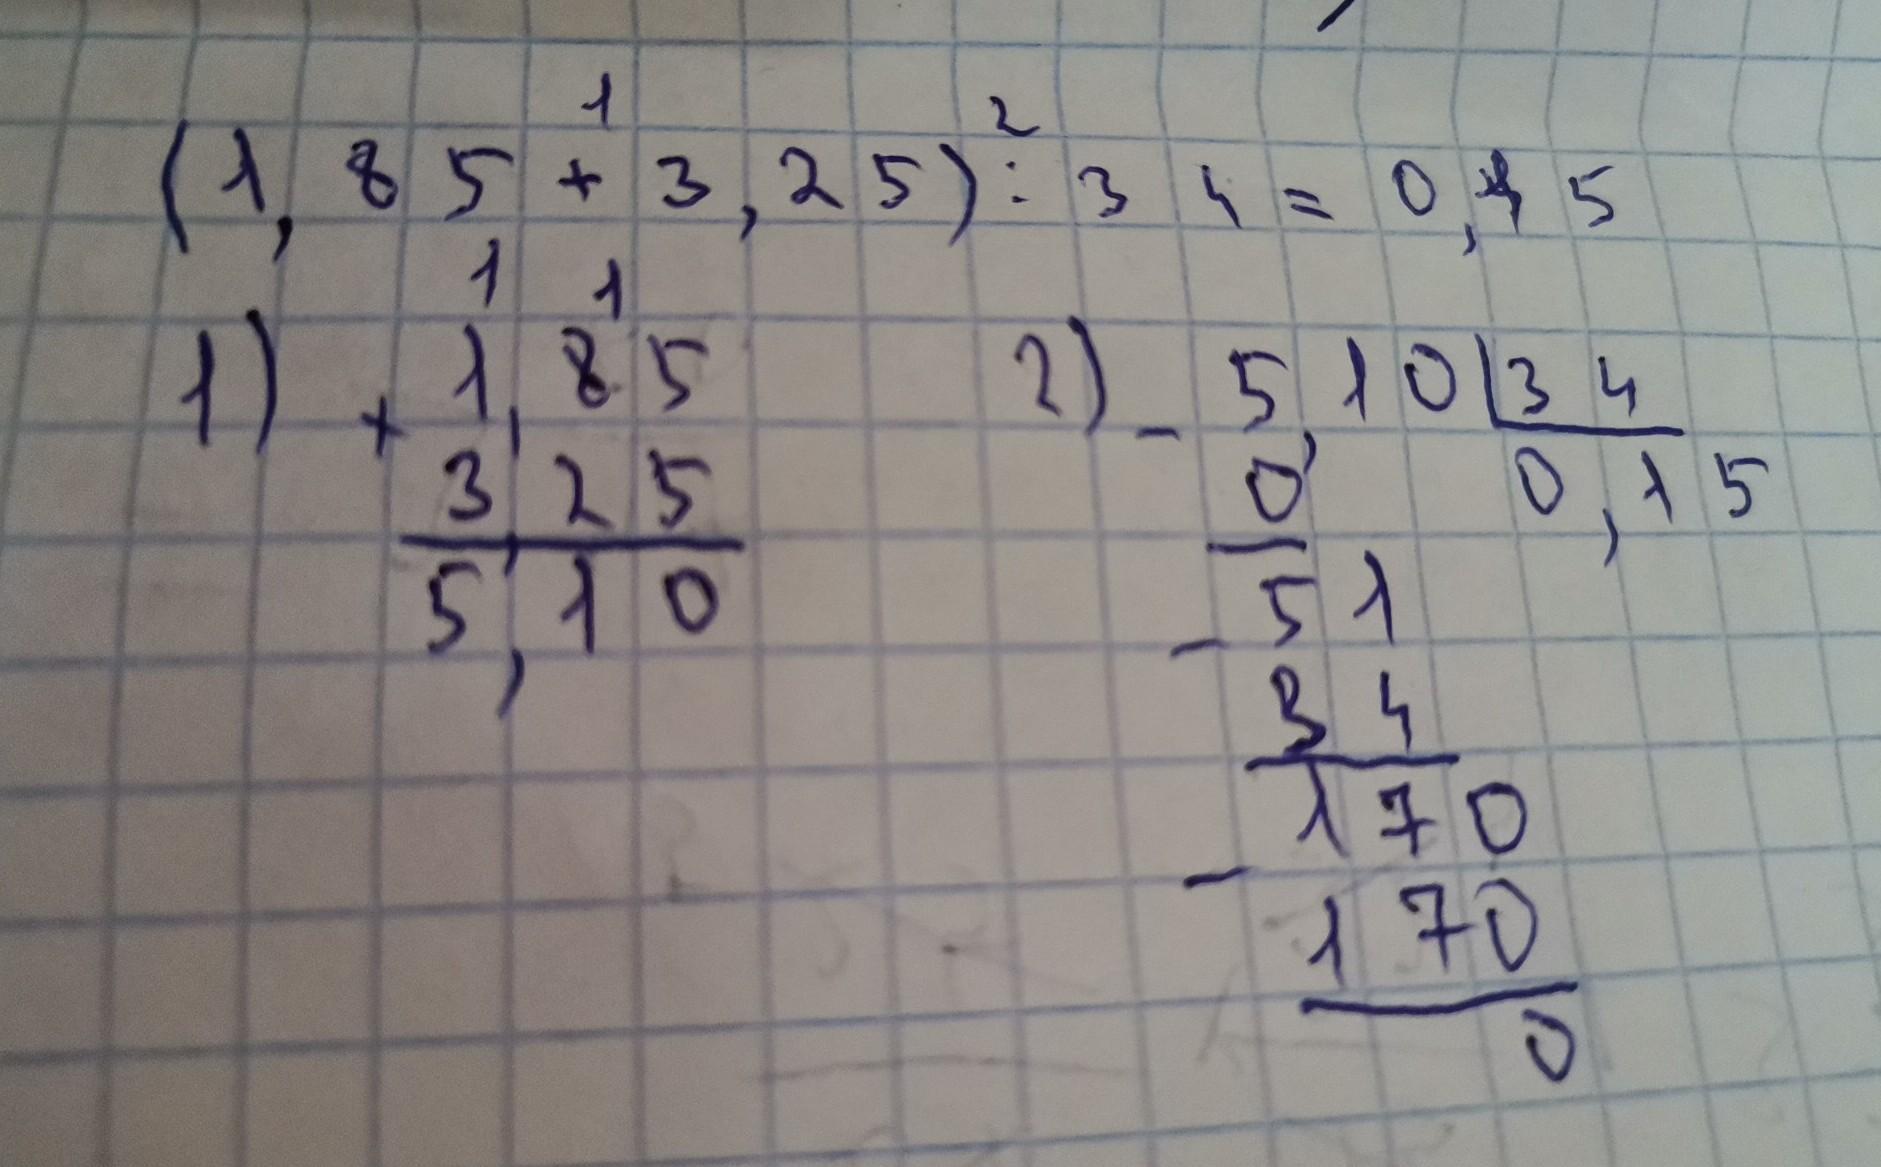 1 2
(1,85 + 3,25) : 34 = 0,15
1 1
1) + 1,85
3,25
5,10
2) - 5,10 | 34
0 0,15
- 51
34
170
- 170
0